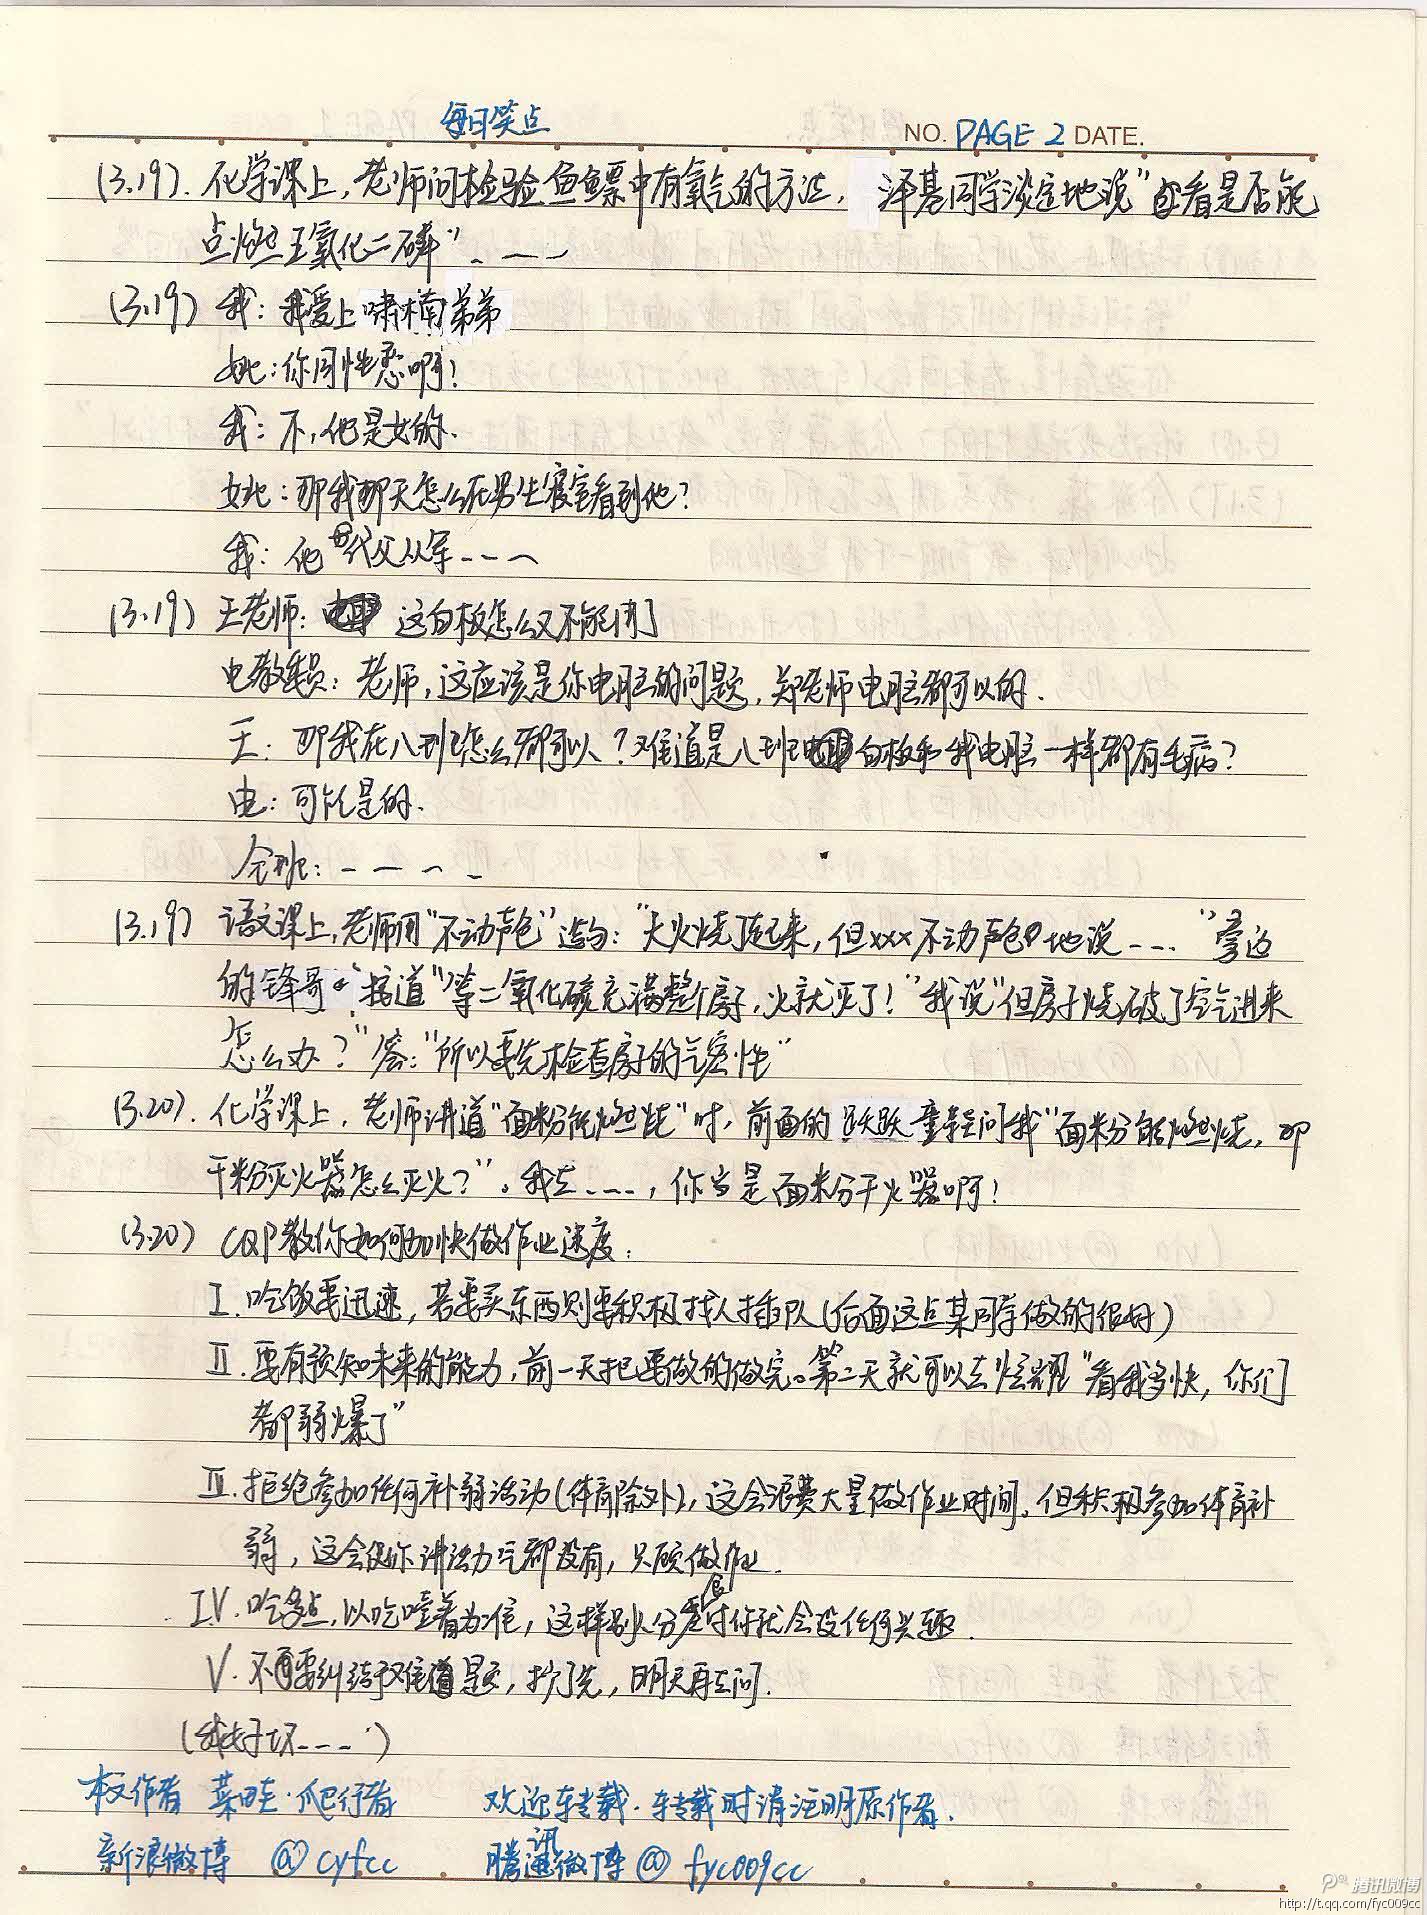 每日笑点
NO. PAGE 2 DATE.
(3.19). 化学课上，老师问检验鱼鳔中有氧气的方法， 泽基同学淡定地说"看是否能
点燃五氧化二磷"。---
(3.19) 我：我爱上啸楠弟弟
她：你同性恋啊！
我：不，他是女的.
她：那我那天怎么在男生寝室看到他？
我：他代父从军---
(3.19) 王老师： 这白板怎么又不能用了
电教委员：老师，这应该是你电脑的问题，郑老师电脑都可以的.
王：那我在八班怎么都可以？难道是八班白板和我电脑一样都有毛病？
电：可能是的.
全班：----
(3.19) 语文课上，老师用"不动声色"造句："大火烧了起来，但xxx不动声色地说---"旁边
的锋哥接道"等二氧化碳充满整个房子，火就灭了！"我说"但房子烧破了空气进来
怎么办？"答："所以要先检查房子的气密性"
(3.20). 化学课上，老师讲道"面粉能燃烧"时，前面的跃跃童鞋问我"面粉能燃烧，那
干粉灭火器怎么灭火？"。我去---，你当是面粉干火器啊！
(3.20) CQP教你如何加快做作业速度：
I. 吃饭要迅速，若要买东西则要积极找人插队(后面这点某同学做的很好)
II. 要有预知未来的能力，前一天把要做的做完。第二天就可以去炫耀"看我多快，你们
都弱爆了"
III. 拒绝参加任何补弱活动(体育除外)，这会浪费大量做作业时间。但积极参加体育补
弱，这会使你讲话力气都没有，只顾做作业.
IV. 吃多点，以吃噎着为准，这样别人分零食时你就会没任何兴趣.
V. 不要纠结于难题，抄了先，明天再去问.
(我好坏---)
本文作者 菜畦·爬行者 欢迎转载. 转载时请注明原作者.
新浪微博 @cyfcc 腾讯微博@fyc009cc
腾讯微博
http://t.qq.com/fyc009cc